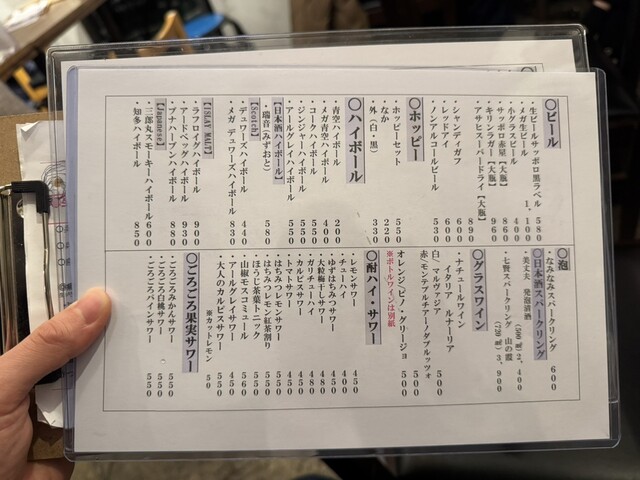 〇ビール
・生ビールサッポロ黒ラベル 580
・メガ生ビール 1,100
・小グラスビール 400
・サッポロ赤星【大瓶】 860
・キリンラガー【大瓶】 960
・アサヒスーパードライ【大瓶】 890
・シャンディガフ 600
・レッドアイ 600
・ノンアルコールビール 530
〇ホッピー
・ホッピーセット 550
・なか 220
・外（白・黒） 330
〇ハイボール
・青空ハイボール 200
・メガ青空ハイボール 400
・ジンジャーハイボール 500
・コークハイボール 550
・アールグレイハイボール 550
【日本酒ハイボール】
・瑞音（みずおと） 580
【Scotch】
・デュワーズハイボール 440
・メガ デュワーズハイボール 830
【ISLAY MALT】
・ラフロイグハイボール 900
・アードベッグハイボール 930
・ブナハーブンハイボール 880
【Japanese】
・三郎丸スモーキーハイボール 600
・知多ハイボール 850
〇泡
・なみなみスパークリング 600
〇日本酒スパークリング
・美丈夫 発泡清酒 (500㎖) 2,400
・七賢スパークリング 山の霞 (720㎖) 3,900
〇グラスワイン
・ナチュールワイン
・イタリア ルナーリア
白、マルヴァジア 500
赤/モンテプルチアーノダブルッツォ 500
オレンジ/ピノ・グリージョ 500
※ボトルワインは別紙
〇酎ハイ・サワー
・レモンサワー 450
・チューハイ 400
・ゆずはちみつサワー 450
・大粒梅干しサワー 480
・ガリチューハイ 480
・カルピスサワー 450
・トマトサワー 450
・はちみつレモンサワー 550
・はちみつレモン紅茶割り 550
・ほうじ茶葉トニック 500
・山椒モスコミュール 560
・アールグレイサワー 450
・大人のカルピスサワー 550
※カットレモン 50
〇ごろごろ果実サワー
・ごろごろみかんサワー 550
・ごろごろ白桃サワー 550
・ごろごろパインサワー 550